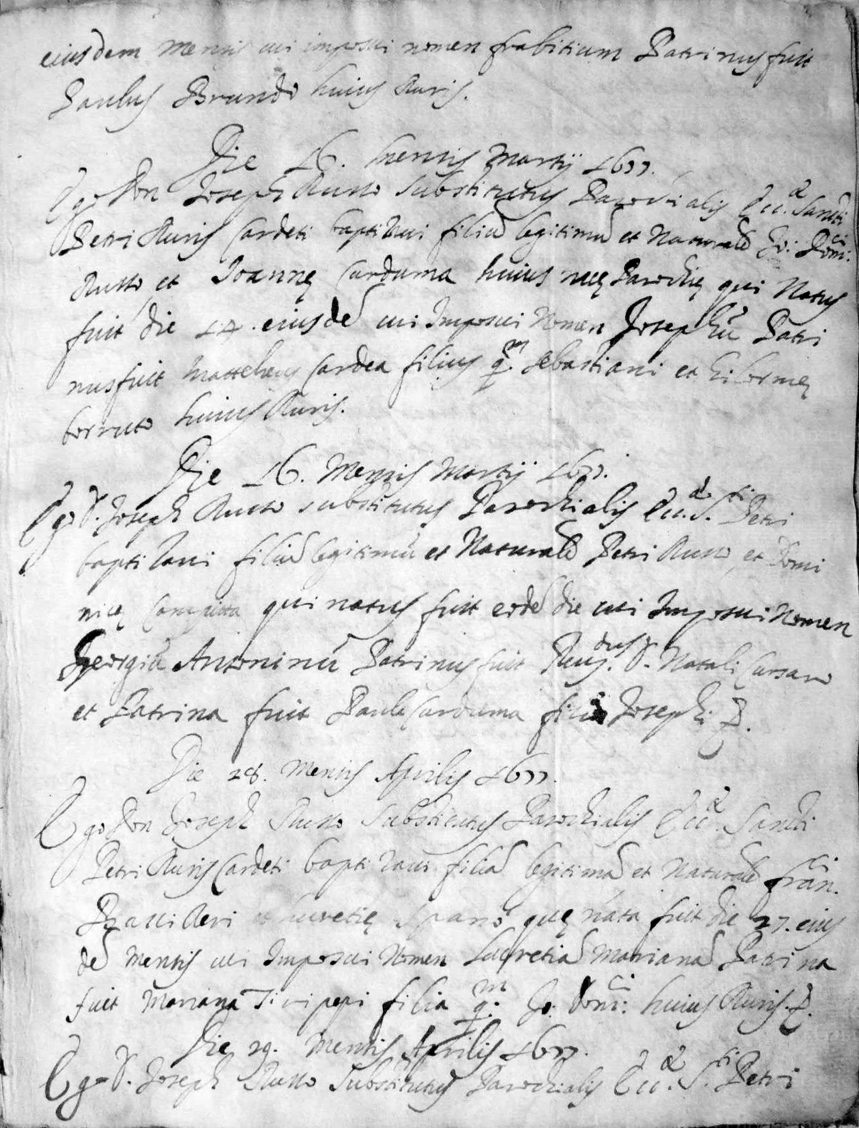 eiusdem mensis cui imposui nomen frabitium Patrinus fuit
Paulus Brundo huius Ruris.
Die 16. Mensis Martij 1677.
Ego Don Joseph Russo substitutus Parochialis Ecc.æ Sancti
Petri Ruris Cardeti baptizaui filiũ legitimũ et Naturalẽ Jo: Dom.ci
Russo et Joannę Carduma huius meę Parochię qui Natus
fuit die 14. eiusdẽ cui Imposui Nomen Josephũ Patri
nus fuit Mattheus Cardea filius q.m Sebastiani et
borruto huius Ruris.
Die 16. Mensis Martij 1677.
Ego D. Joseph Russo substitutus Parochialis Ecc.æ S.ti Petri
baptizaui filiũ legitimũ et Naturalẽ Petri Russo, et Domi
nicę qui natus fuit eodẽ die cui Imposui Nomen
Georgiũ Antoninũ Patrinus fuit Reu.dus D. Natali Cursaro
et Patrina fuit Paula Carduma filia Joseph:
Die 28. Mensis Aprilis 1677.
Ego Don Joseph Russo Substitutus Parochialis Ecc.æ Sancti
Petri Ruris Cardeti baptizaui filiã legitimã et Naturalẽ Fran.
et Lucretię Spanò quę nata fuit die 27. eius
dẽ Mensis cui Imposui Nomen Lucretiã Marianã Patrina
fuit Mariana Tiripepi filia q.m Jo: Dom.ci huius Ruris
Die 29. Mensis Aprilis 1677.
Ego D. Joseph Russo Substitutus Parochialis Ecc.æ S.ti Petri